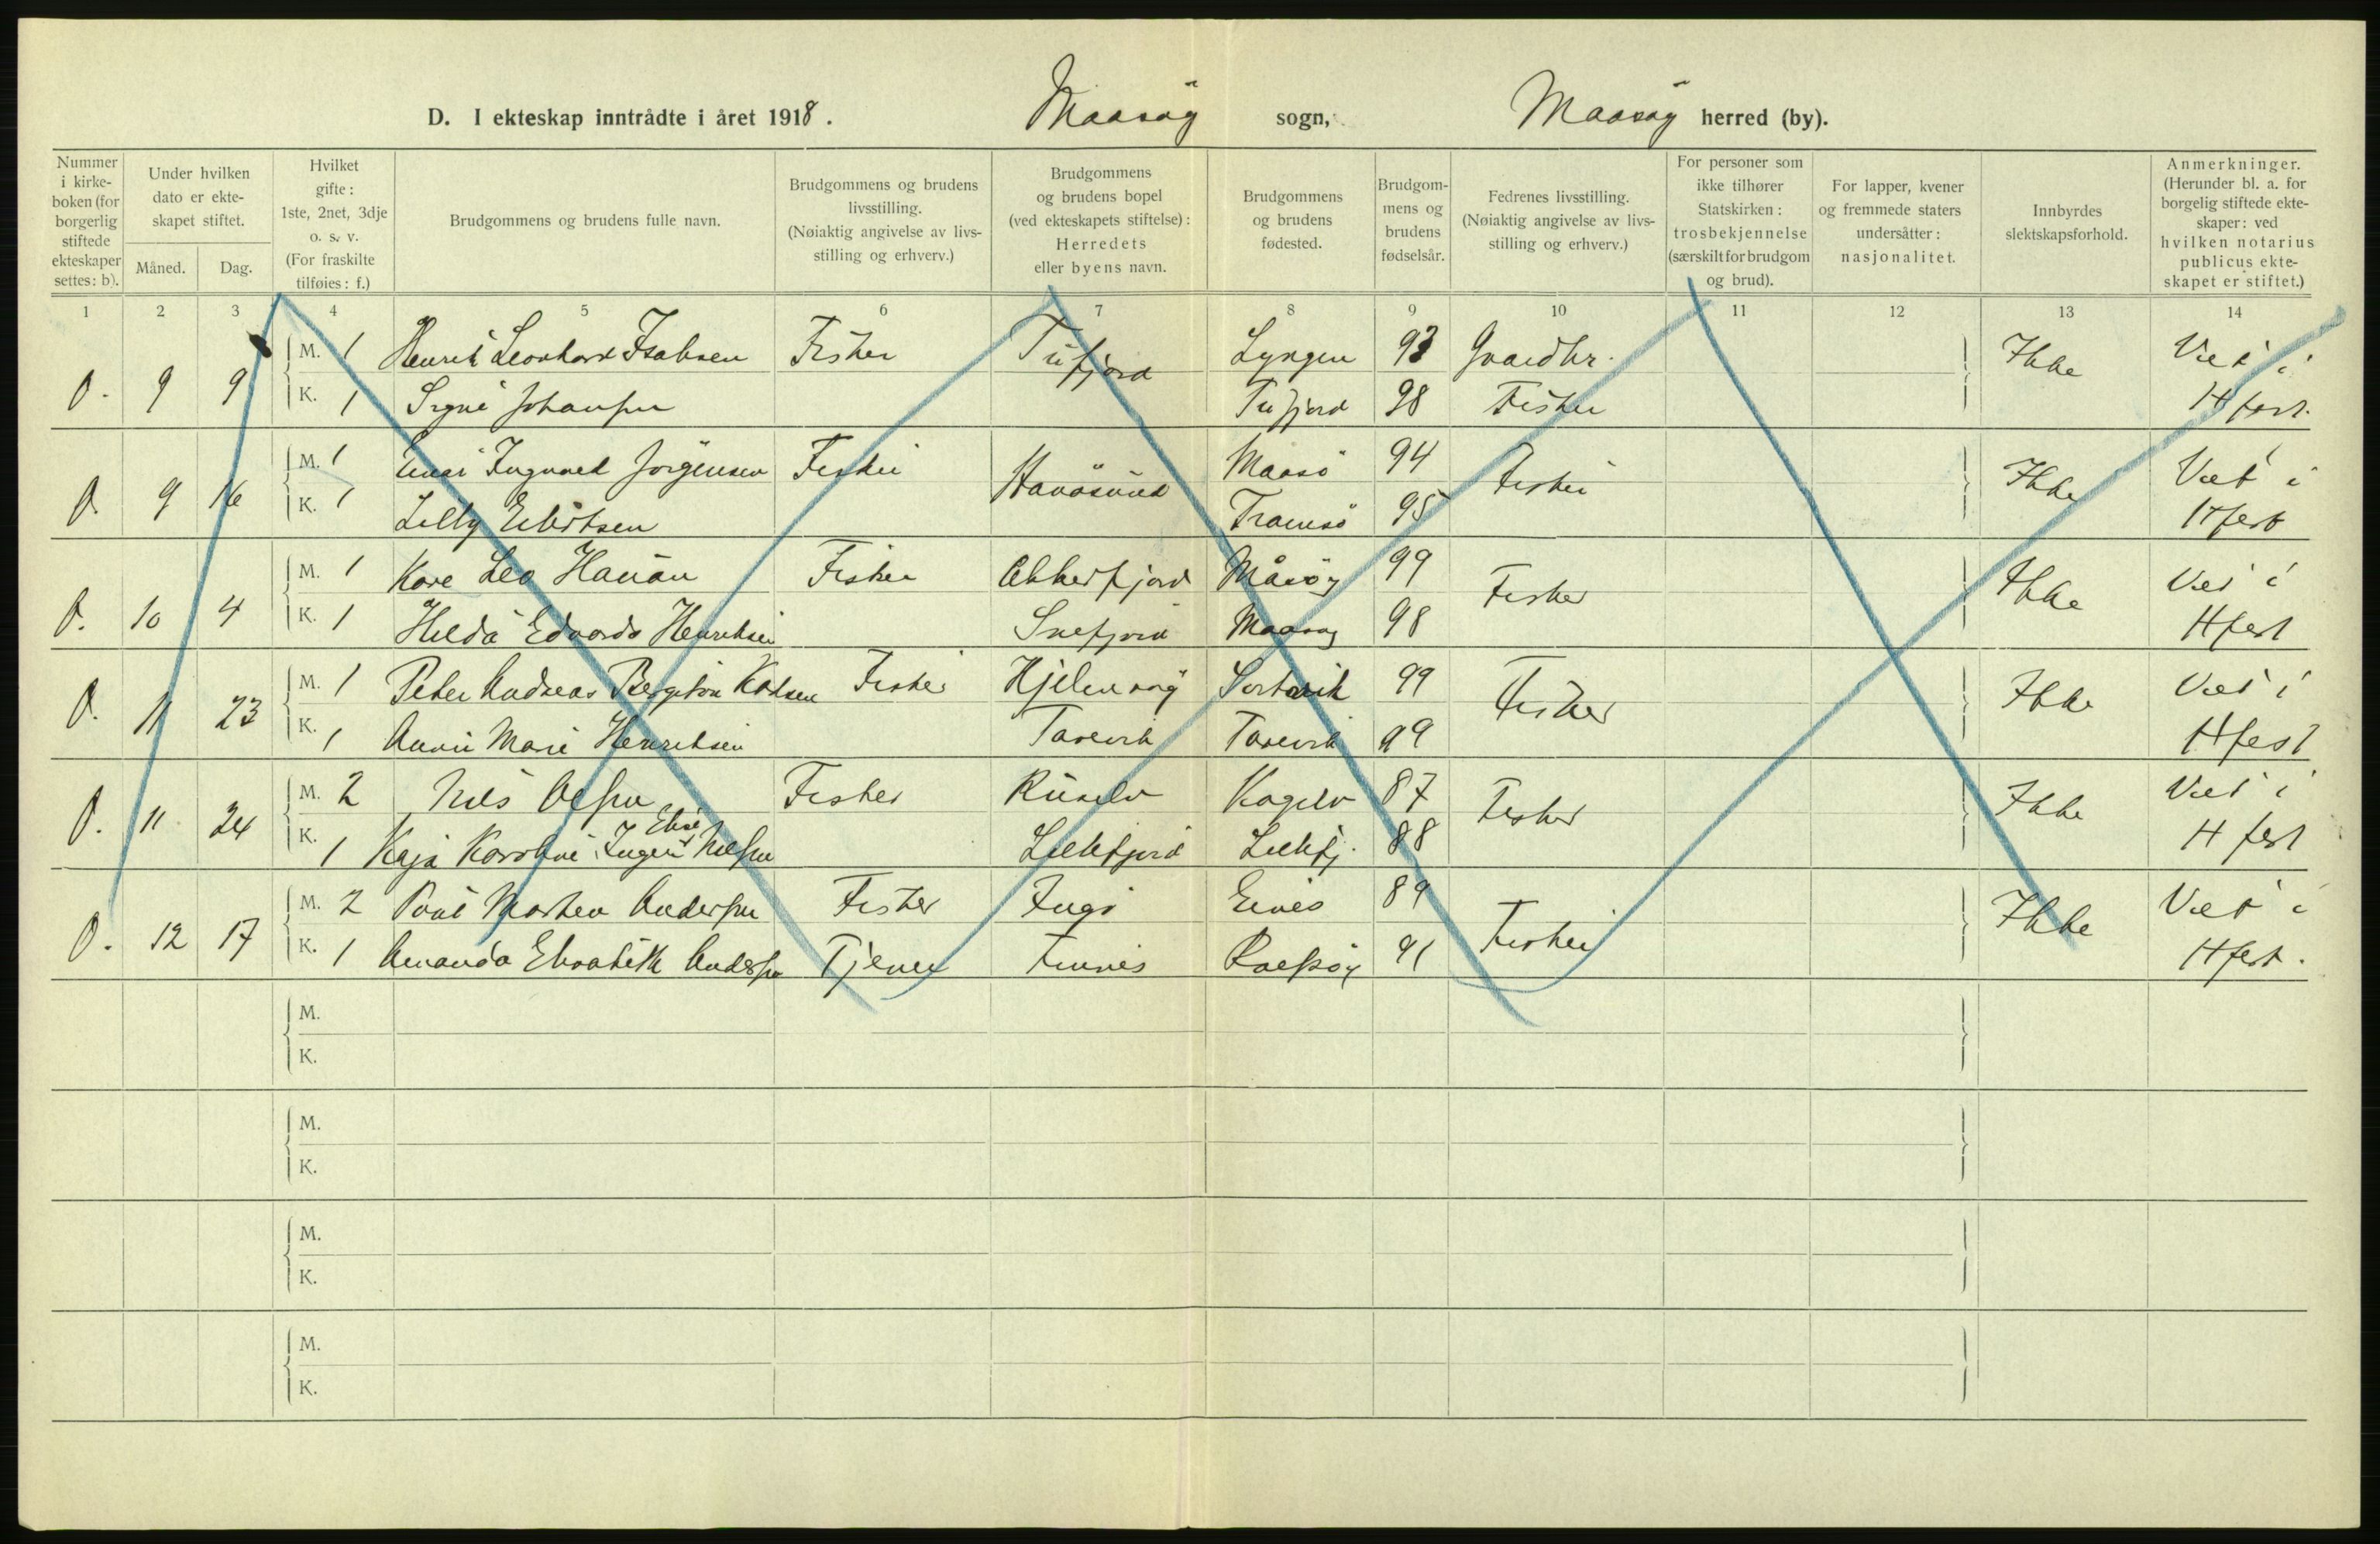 D. I ekteskap inntrådte i året 1918. Maasöy sogn, Maasöy herred (by).
Nummer i kirke-boken (for borgerlig stiftede ekteskaper settes: b).
Under hvilken dato er ekte-skapet stiftet.
Måned. Dag.
Hvilket gifte: 1ste, 2net, 3dje o. s. v. (For fraskilte tilføies: f.)
Brudgommens og brudens fulle navn.
Brudgommens og brudens livsstilling. (Nøiaktig angivelse av livs-stilling og erhverv.)
Brudgommens og brudens bopel (ved ekteskapets stiftelse): Herredets eller byens navn.
Brudgommens og brudens fødested.
Brudgom-mens og brudens fødselsår.
Fedrenes livsstilling. (Nøiaktig angivelse av livs-stilling og erhverv.)
For personer som ikke tilhører Statskirken: trosbekjennelse (særskilt for brudgom og brud).
For lapper, kvener og fremmede staters undersåtter: nasjonalitet.
Innbyrdes slektskapsforhold.
Anmerkninger. (Herunder bl. a. for borgelig stiftede ekte-skaper: ved hvilken notarius publicus ekte-skapet er stiftet.)
1 2 3 4 5 6 7 8 9 10 11 12 13 14
M. 1 Henrik Leonhard Isaksen Fisker Tufjord Lyngen 93 Gaardbr. Ikke Viet i
O. 9 9 K. 1 Signe Johansen Tufjord 98 Fisker Hfest.
M. 1 Einar Ingvard Jörgensen Fisker Havösund Maasö 94 Fisker Ikke Viet i
O. 9 16 K. 1 Lilly Tromsö 95 Hfest
M. 1 Kåre Leo Fisker Akkarfjord Måsöy 99 Fisker Ikke Viet i
O. 10 4 K. 1 Hilda Edvarda Henriksen Snefjord Maasöy 98 Hfest
M. 1 Peter Andreas Fisker Hjelmsöy 99 Fisker Ikke Viet i
O. 11 23 K. 1 Anna Marie Henriksen Tarevik Tarevik 99 Hfest
M. 2 Nils Olsen Fisker Russelv 87 Fisker Ikke Viet i
O. 11 24 K. 1 Kaja Karoline Inger Elise Nilsen Lillefjord Lillefj. 88 Hfest
M. 2 Poul Morten Andersen Fisker Ingö 89 Fisker Ikke Viet i
O. 12 17 K. 1 Amanda Elisabeth Andersen Tjener Rolfsöy 91 Hfest.
M.
K.
M.
K.
M.
K.
M.
K.